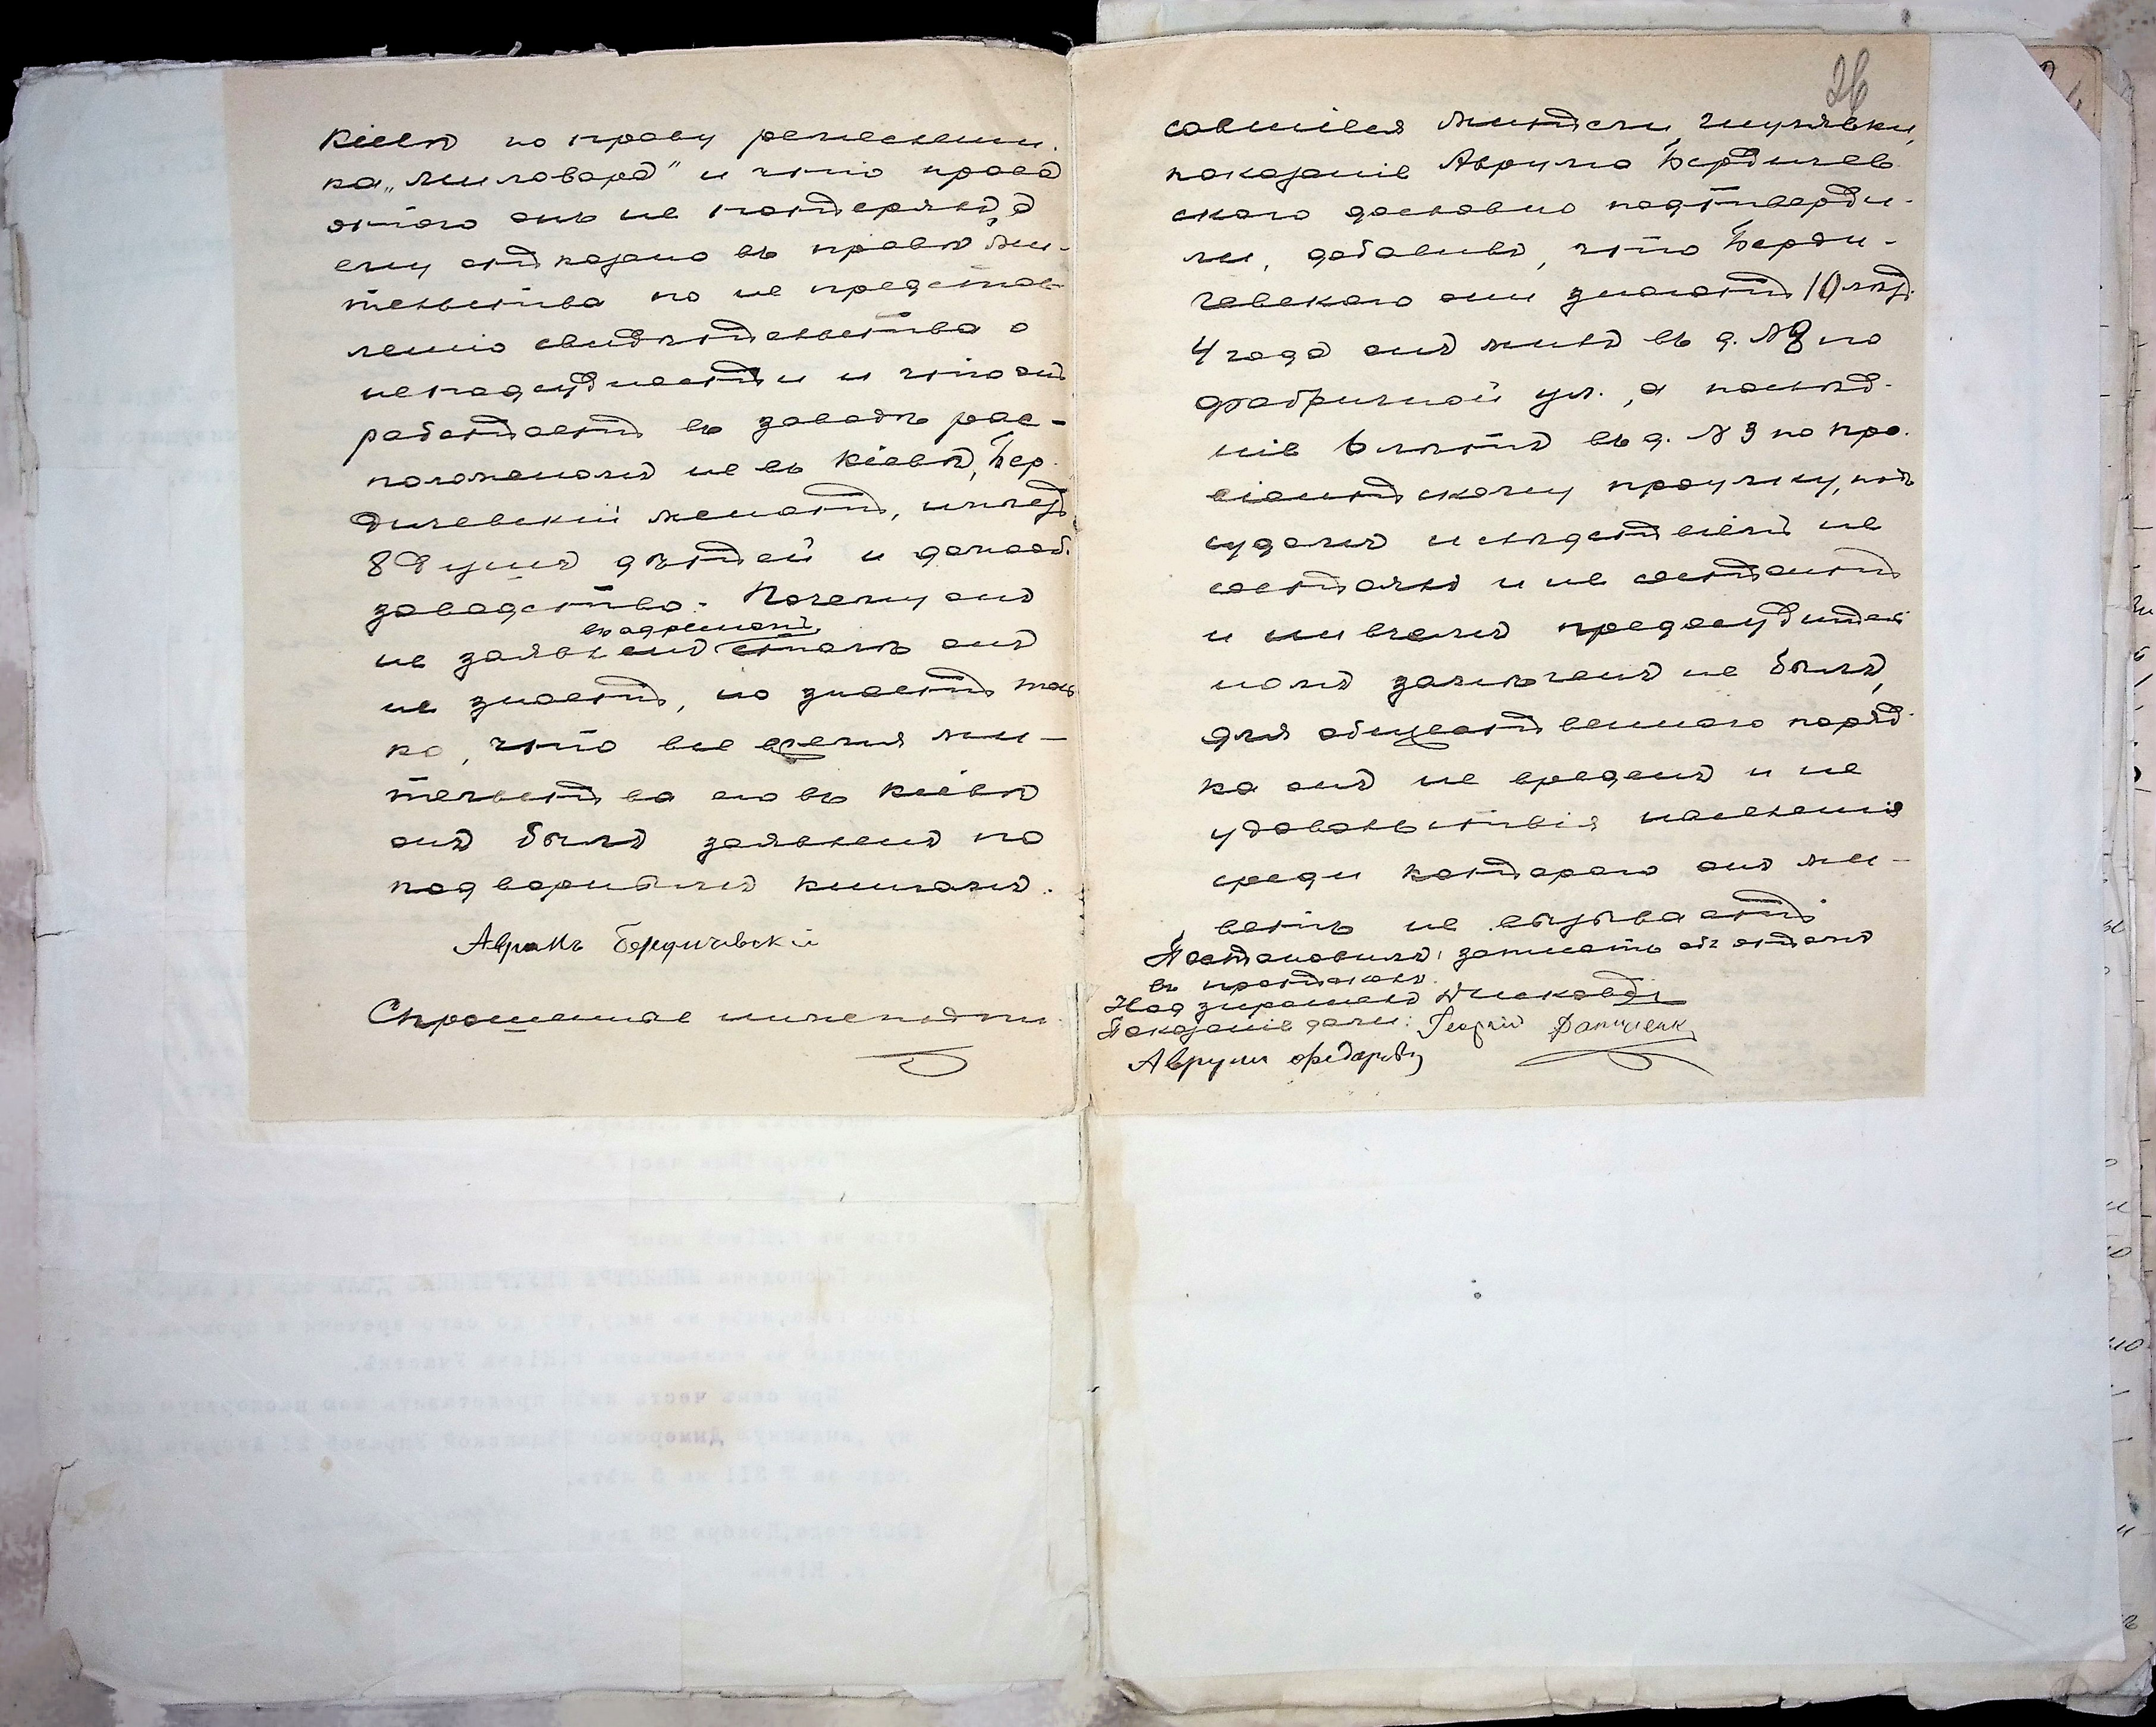 Кіевѣ по праву ремесленни-
ка „мыловара" и что права
этого онъ не потерялъ, а
ему отказано въ правѣ жи-
тельства по не представ-
ленію свидѣтельства о
неподсудности и что онъ
работаетъ въ заводѣ рас-
положеномъ не въ Кіевѣ, Бер-
дичевскій женатъ, имѣетъ
8 душъ дѣтей и домооб-
заводство. Почему онъ
въ адресномъ
не заявленъ столѣ онъ
не знаетъ, но знаетъ толь
ко, что все время жи-
тельства его въ Кіевѣ
онъ былъ заявленъ по
подворнымъ книгамъ.
Аврамъ Бердичевскій
Спрошенные нижеподпи
26
савшіеся жители, Шулявки,
показаніе Аврума Бердичев
скаго дословно подтверди-
ли, добавивъ, что Берди-
чевскаго они знаютъ 10 лѣтъ
4 года онъ жилъ въ д. № 8 по
фабричной ул., а послѣд-
ніе 6 лѣтъ въ д. № 3 по про-
віантскому проулку, подъ
судомъ и слѣдствіемъ не
состоялъ и не состоитъ
и ни в чемъ предосудитель
номъ замѣченъ не былъ,
для общественнаго поряд-
ка онъ не вреденъ и не
удовольствія населенія
среди котораго онъ жи-
ветъ не вызываетъ
Постановилъ: записать объ этомъ
въ протоколъ.
Надзиратель
Показаніе дали: Георгій
Аврумъ